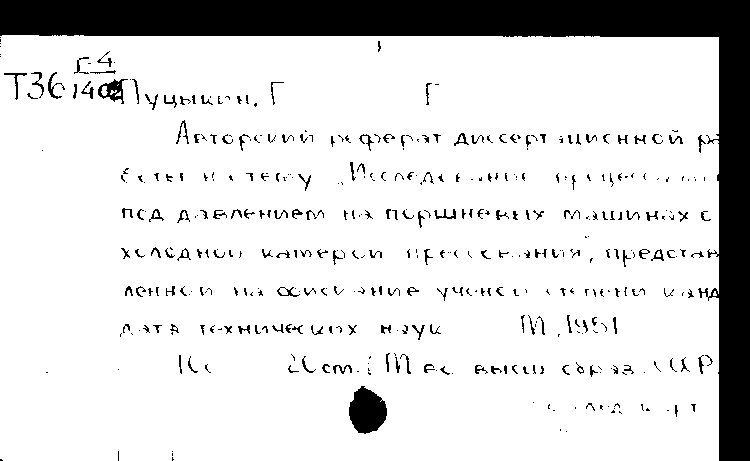 Г-4
Т36 1402
Пуцыкин, Г Г
Авторский реферат диссертационной ра
боты на тему „Исследование процесса
под давлением на поршневых машинах с
холодной камерой прессования", представ
ленной на соискание ученой степени канд
дата технических наук М, 1951
20см. (М во высш образ. СССР.
след карт